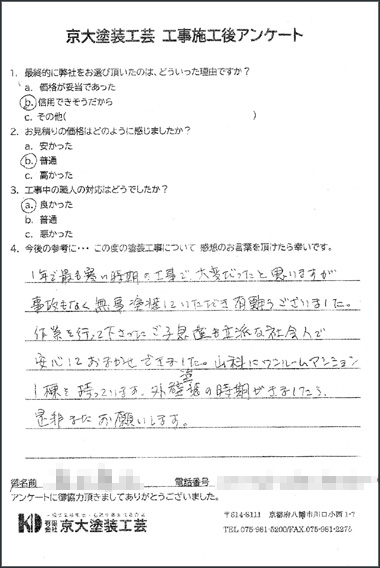 京大塗装工芸 工事施工後アンケート
1. 最終的に弊社をお選び頂いたのは、どういった理由ですか？
a. 価格が妥当であった
b. 信用できそうだから
c. その他( )
2. お見積りの価格はどのように感じましたか？
a. 安かった
b. 普通
c. 高かった
3. 工事中の職人の対応はどうでしたか？
a. 良かった
b. 普通
c. 悪かった
4. 今後の参考に･･･ この度の塗装工事について 感想のお言葉を頂けたら幸いです。
1年で最も寒い時期の工事で、大変だったと思いますが
事故もなく無事塗装していただき有難うございました。
作業を行って下さったご子息達も立派な社会人で
安心しておまかせできました。山科にワンルームマンション
1棟を持っています。外壁塗装の時期がきましたら、
是非またお願いします。
御名前 電話番号
アンケートに御協力頂きましてありがとうございました。
KD 有限会社 京大塗装工芸
〒614-8111 京都府八幡市川口小西1-7
TEL 075-981-5200/FAX.075-981-2275